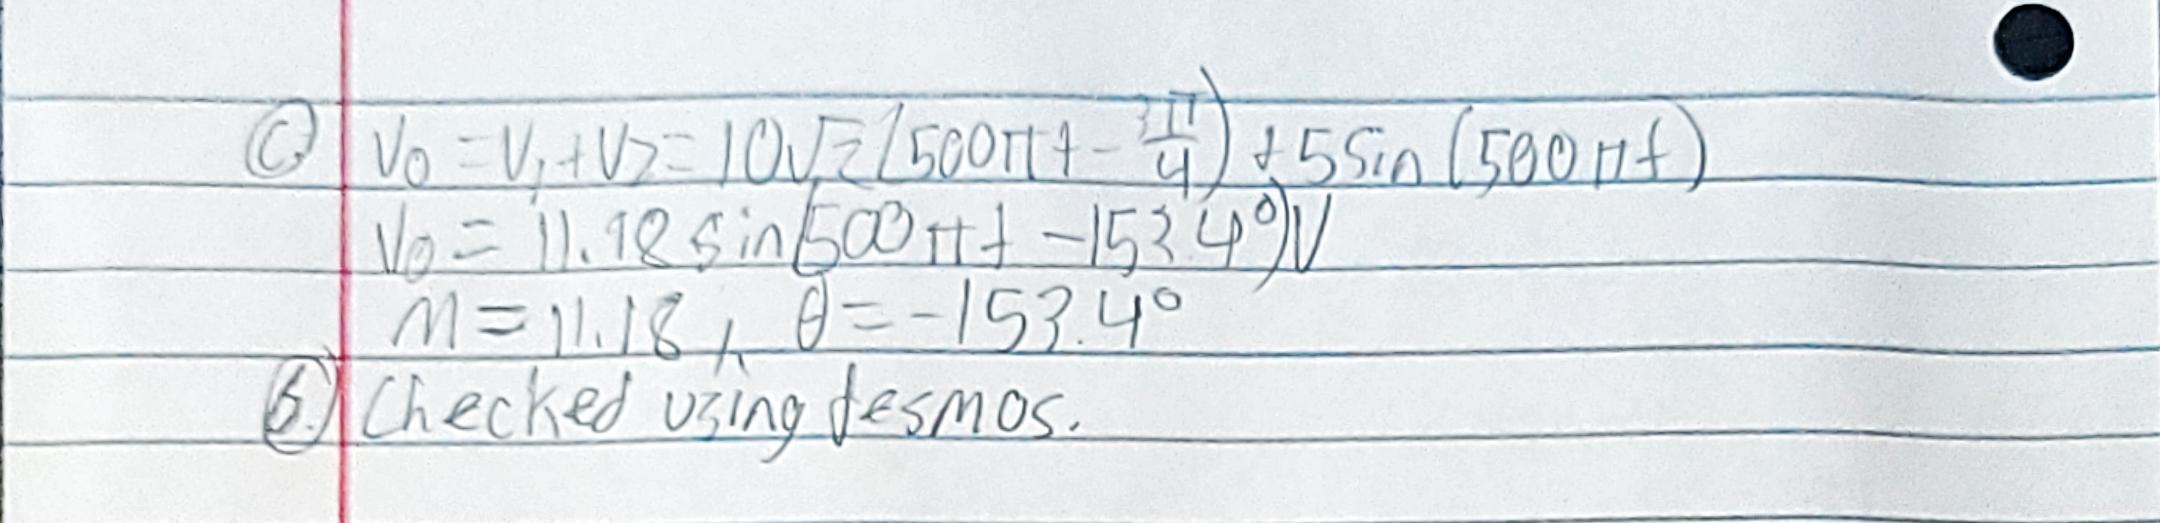 C. V0 = V1 + V2 = 10√2 (500πt - 3π/4) + 5 sin (500πt)
V0 = 11.18 sin(500πt - 153.4°)V
M = 11.18, θ = -153.4°
Checked using desmos.